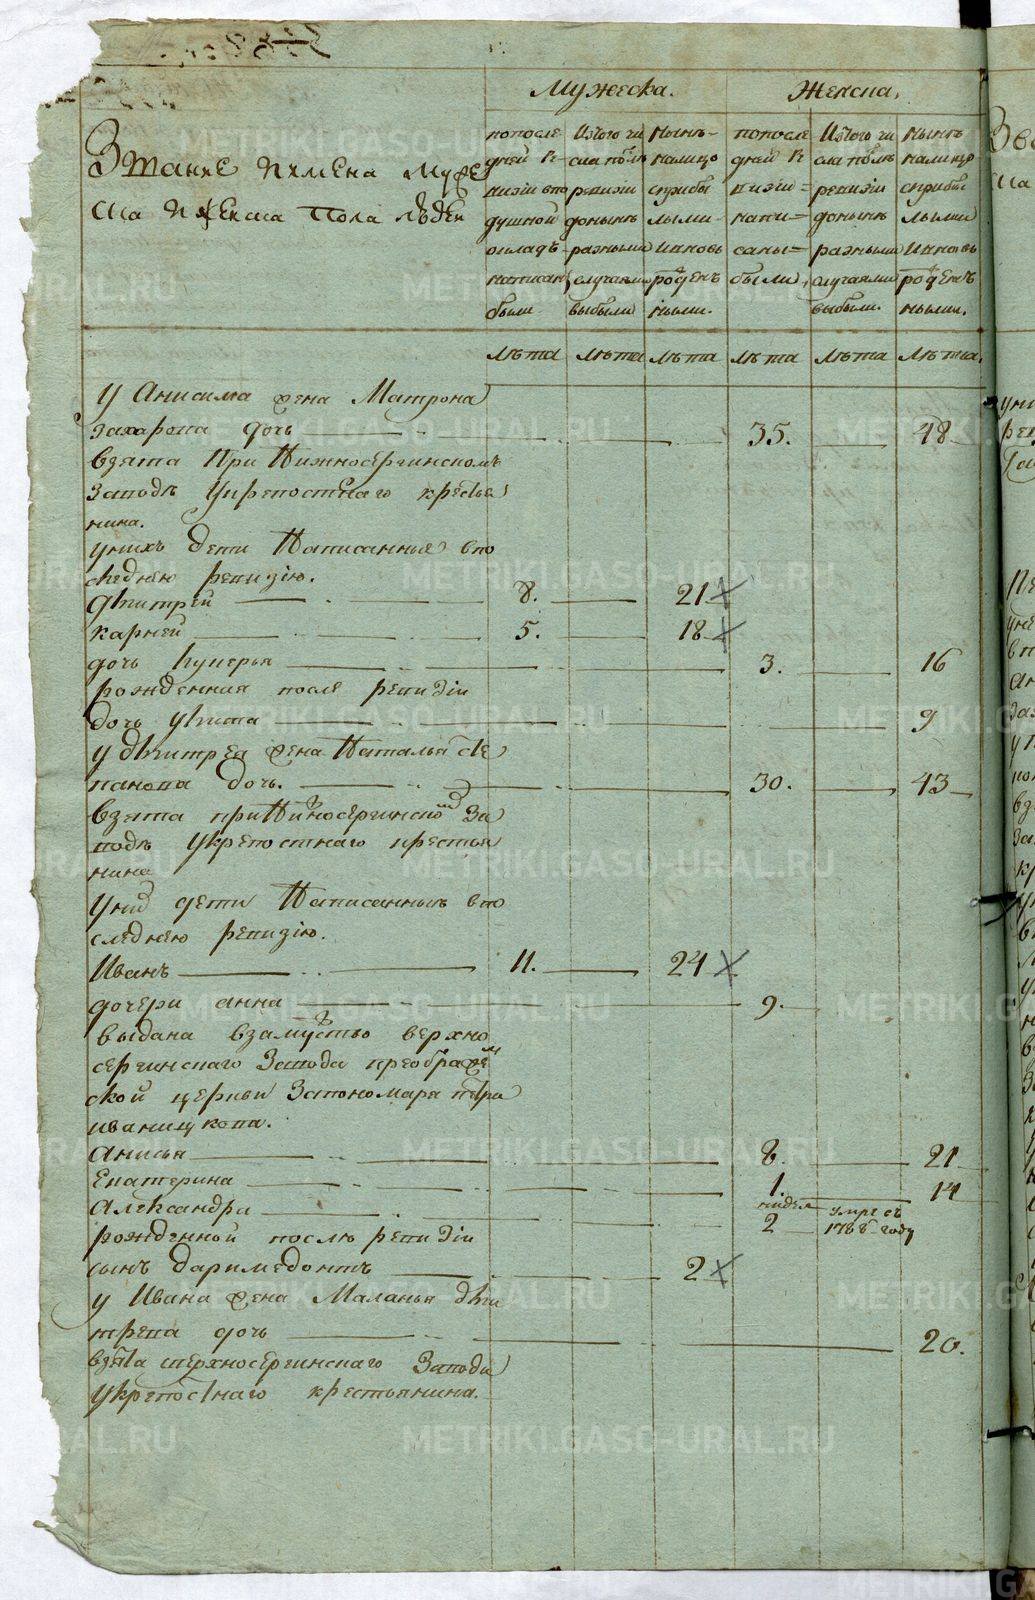 Мужеска.
Женска.
Звание имена муже
ска и женска пола людей
попосле
дней ре
визии впо
душной
окладъ
написаны
были
Изтого чи
сла после
ревизии
доныне
разными
случаями
выбыли
Ныне
налицо
съприбы
лыми
ивновь
рожден
ными.
попосле
дней ре
визии
напи=
саны=
были,
Изтого чи
сла после
ревизии
доныне
разными
случаями
выбыли.
Ныне
налицо
сприбы
лыми
ивновь
рожден
ными.
лета лета лета лета лета лета.
у Анисима жена Матрона
захарова дочь 35. 48
взята при Нижносергинскомъ
заводе укрепостнаго крестья
нина.
унихъ дети Написанныя впо
следнею ревизiю.
Дмитрей 8. 21
карней 5. 18
дочь лукерья 3. 16
рожденная после ревизiи
дочь улита 9
у дмитрея жена Наталья сте
панова дочь. 30. 43
взята приНижносергинскомъ за
воде укрепостнаго крестья
нина
уних дети Написанныя впо
следнею ревизiю.
Иванъ 11. 24
дочери анна 9.
выдана взамужство верхно
сергинскаго завода преображен
ской церкви запономаря петра
иваницкова.
анисья 8. 21
Екатерина 1. 14
Александра недел 2 умре въ 1788 году
рожденной послю ревизiи
сынъ даримедонтъ 2
у Ивана жена Маланья дми
трева дочь 20.
взята сверхносергинскаго завода
укрепостнаго крестьянина.
METRIKI.GASO-URAL.RU